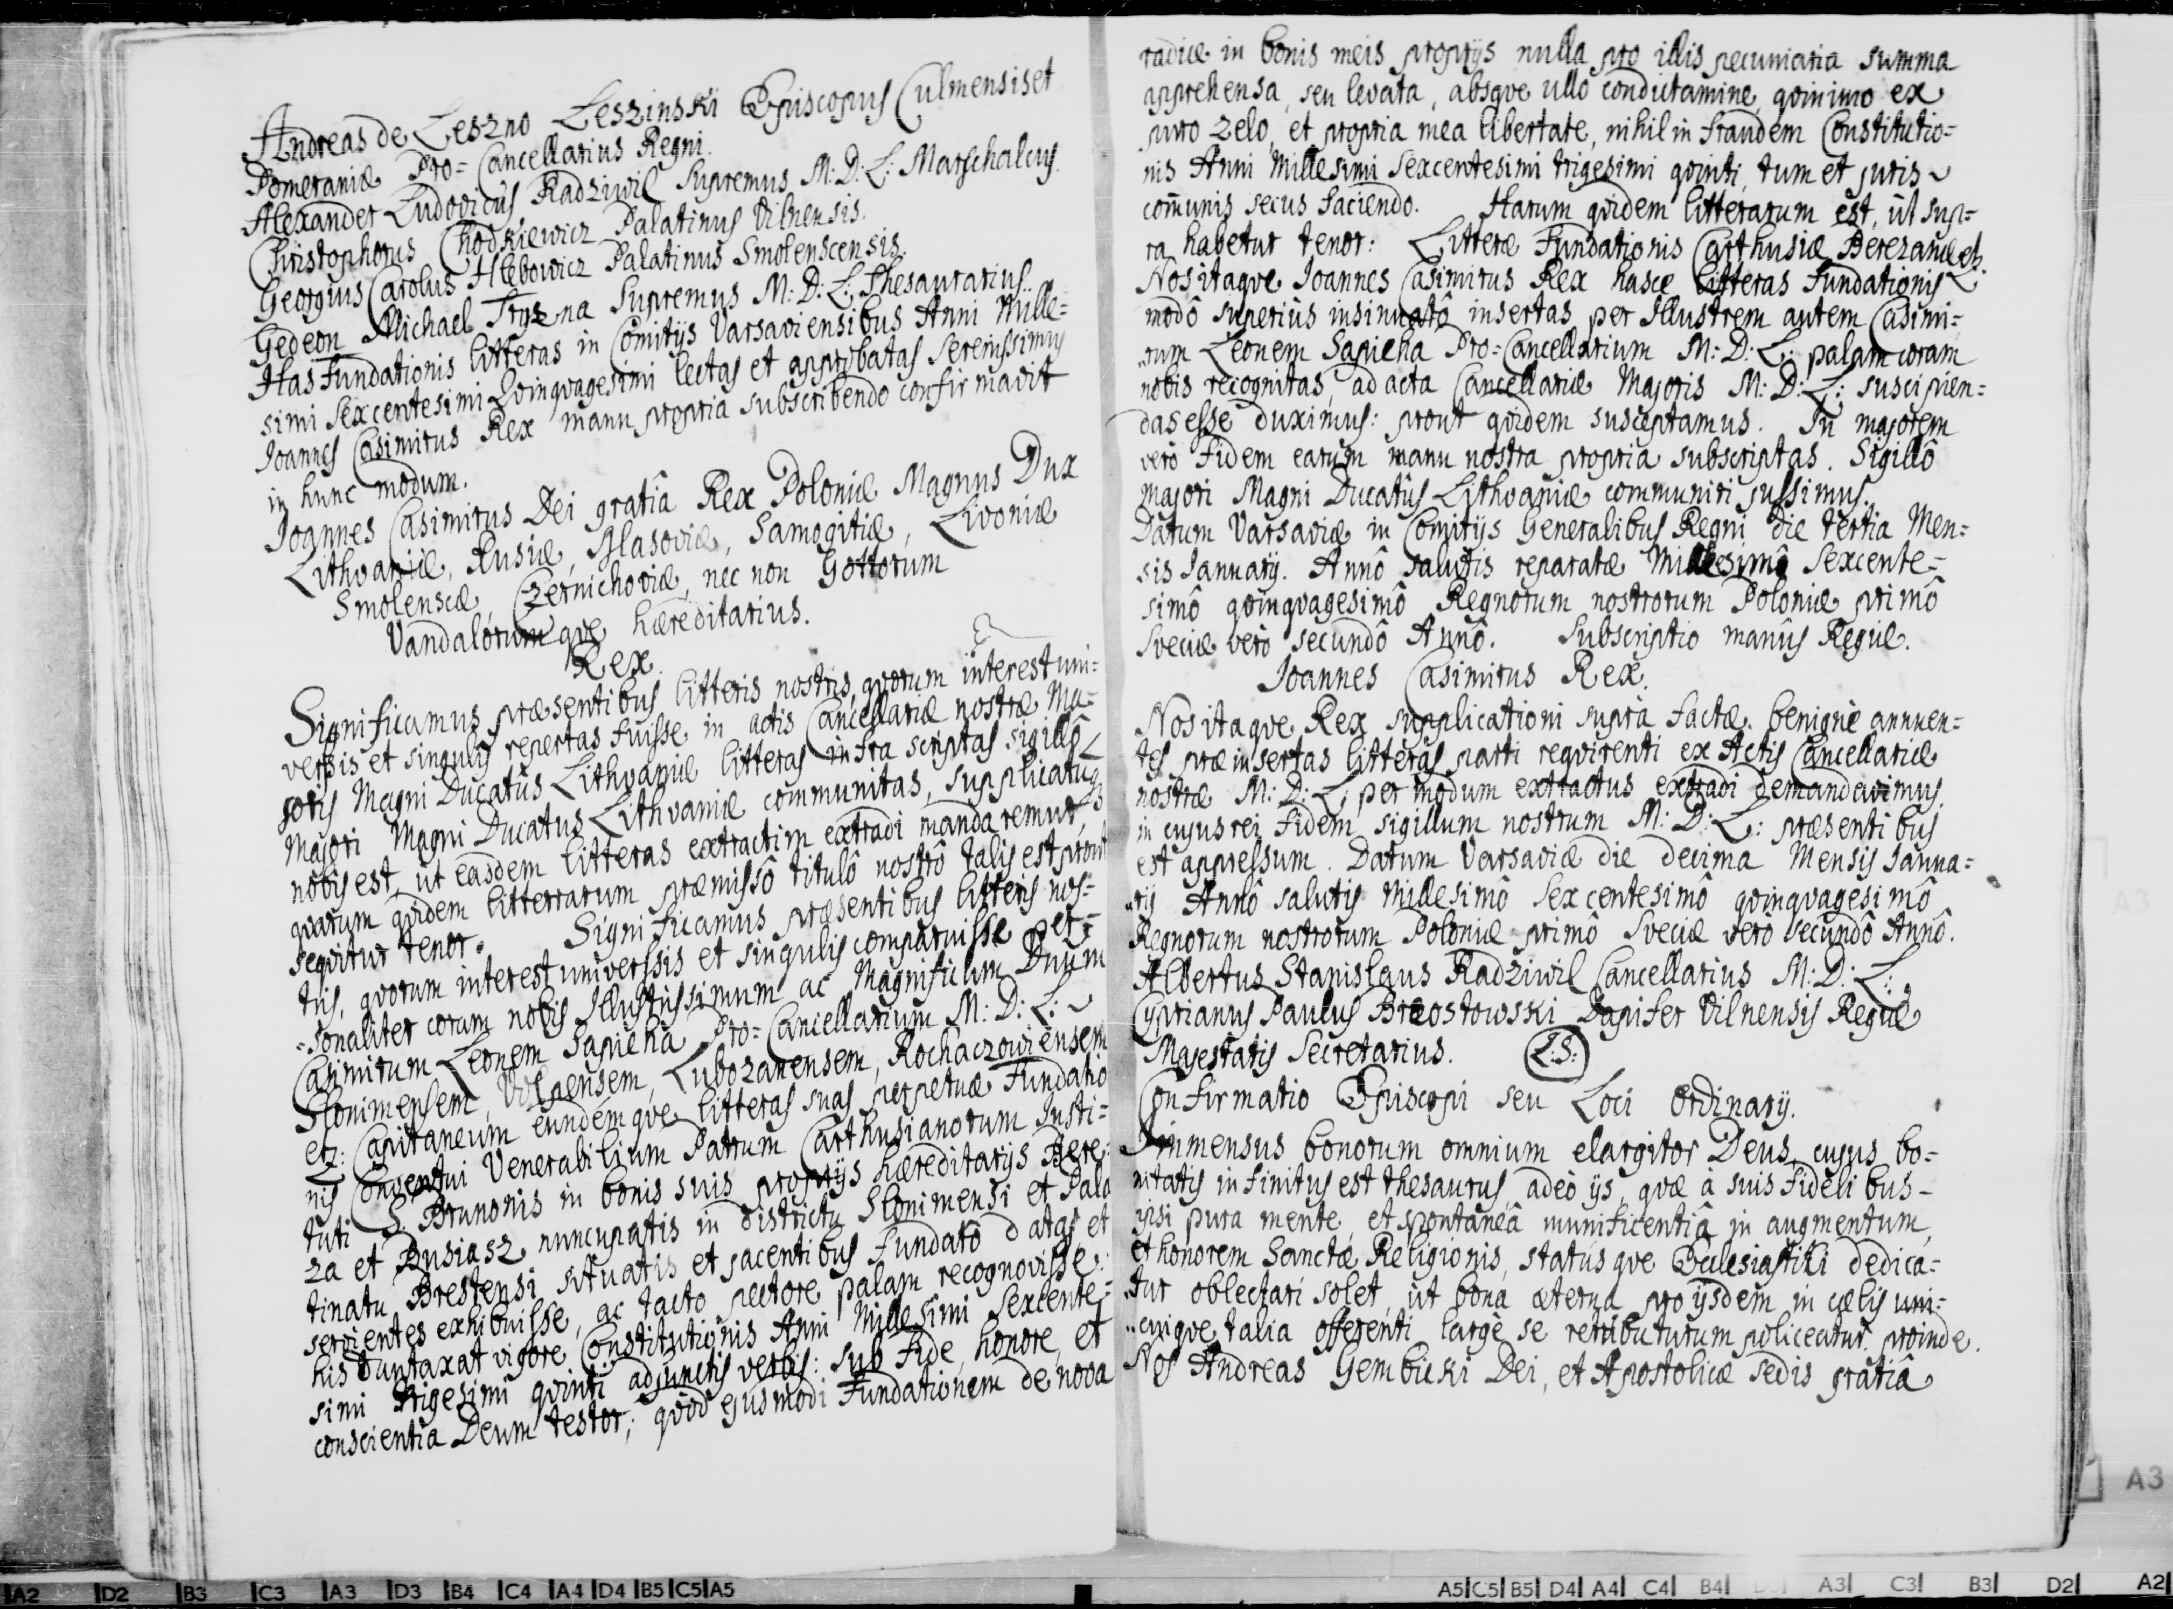 Andreas de Leszno Leszinski Episcopus Culmensis et
Pomeraniæ Pro=Cancellarius Regni.
Alexander Ludovicus Radziwil Supremus M: D: L: Marschalcus.
Christophorus Chodkiewicz Palatinus Vilnensis.
Georgius Carolus Hlebowicz Palatinus Smolenscensis.
Gedeon Michael Tryzna Supremus M: D: L: Thesaurarius.
Has Fundationis litteras in Comitijs Varsaviensibus Anni Mille=
simi Sexcentesimi Qvinqvagesimi lectas et approbatas Serenissimus
Joannes Casimirus Rex manu propria subscribendo confirmavit
in hunc modum.
Joannes Casimirus Dei gratiâ Rex Poloniæ Magnus Dux
Lithvaniæ, Rusiæ, Masoviæ, Samogitiæ, Livoniæ
Smolensciæ, Czernichoviæ, nec non Gottorum
Vandalorumqve hæreditarius.
Rex.
Significamus præsentibus litteris nostris, qvorum interest uni=
versis et singulis repertas fuisse in actis Cancellariæ nostræ Ma=
joris Magni Ducatûs Lithvaniæ litteras infra scriptas sigillô
Majori Magni Ducatus Lithvaniæ communitas, supplicatuqz
nobis est, ut easdem litteras extractim extradi mandaremur,
qvarum qvidem litterrarum præmissô titulô nostrô talis est prout
seqvitur tenor. Significamus præsentibus litteris nos=
tris, qvorum interest universsis et singulis comparuisse per=
=sonaliter coram nobis Illustrissimum ac Magnificum Dnum
Casimirum Leonem Sapieha Pro=Cancellarium M: D: L:
Slonimensem, Volpensem, Lubozanensem, Rochaczowiensem
etz: Capitaneum eundemqve litteras suas perpetuæ Fundatio
nis Conventui Venerabilium Patrum Carthusianorum Insti=
tuti S: Brunonis in bonis suis proprijs hæreditarijs Bere=
za et Busiasz nuncupatis in districtu Slonimensi et Pala
tinatu Brestensi situatis et jacentibus fundatô datas et
servientes exhibuisse, ac tacto pectore palam recognovisse.
his duntaxat vigore Constitutionis Anni Millesimi Sexcente=
simi trigesimi qvinti adjunctis verbis: sub fide, honore, et
conscientia Deum testor; qvòd ejusmodi Fundationem de nova
radice in bonis meis proprijs nulla pro illis pecuniaria summa
apprehensa, seu levata, absqve ullo condictamine, qvinimo ex
puro zelo, et propria mea libertate, nihil in fraudem Constitutio=
nis Anni Millesimi Sexcentesimi trigesimi qvinti, tum et juris
com̃unis secus faciendo. Harum qvidem litterarum est, ut sup=
ra habetur tenor: Litteræ Fundationis Carthusiæ Berezanæ etz.
Nos itaqve Joannes Casimirus Rex hasce litteras Fundationis
modô superiùs insinuatô insertas per Illustrem autem Casimi=
rum Leonem Sapieha Pro=Cancellarium M: D: L: palam coram
nobis recognitas, ad acta Cancellariæ Majoris M: D: L: suscipien=
das esse duximus: prout qvidem susceptamus. In majorem
verò fidem earum manu nostra propria subscriptas. Sigillô
majori Magni Ducatûs Lithvaniæ communiri jussimus.
Datum Varsaviæ in Comitijs Generalibus Regni die tertia Men=
sis Januarij. Annô salutis reparatæ Millesimô Sexcente=
simô qvinqvagesimô Regnorum nostrorum Poloniæ primô
Sveciæ verò secundô Annô. Subscriptio manûs Regiæ.
Joannes Casimirus Rex.
Nos itaqve Rex supplicationi supra factæ benignè annuen=
tes præinsertas litteras parti reqvirenti ex Actis Cancellariæ
nostræ M: D: L: per modum extractus extradi demandavimus.
in cujus rei fidem sigillum nostrum M: D: L: præsentibus
est appressum. Datum Varsaviæ die decima Mensis Janua=
rij Annô salutis Millesimô Sexcentesimô qvinqvagesimô
Regnorum nostrorum Poloniæ primô Sveciæ verò secundô Annô.
Albertus Stanislaus Radziwil Cancellarius M: D: L:
Cyprianus Paulus Brzostowski Dapifer Vilnensis Regiæ
Majestatis Secretarius. L:S:
Confirmatio Episcopi seu Loci Ordinarij.
Immensus bonorum omnium elargitor Deus, cujus bo=
nitatis infinitus est thesaurus, adeò ijs, qvæ à suis fidelibus=
ipsi pura mente, et spontaneâ munificentiâ in augmentum,
et honorem Sanctæ Religionis, statusqve Ecclesiastiti dedica=
tur oblectari solet, ut bona æterna pro ijsdem in cælis uni=
cuiqve talia offerenti largè se retributurum policeatur. proinde.
Nos Andreas Gembicki Dei, et Apostolicæ sedis gratiâ
A3
A3
A2 D2 B3 C3 A3 D3 B4 C4 A4 D4 B5 C5 A5
A5 C5 B5 D4 A4 C4 B4 A3 C3 B3 D2 A2